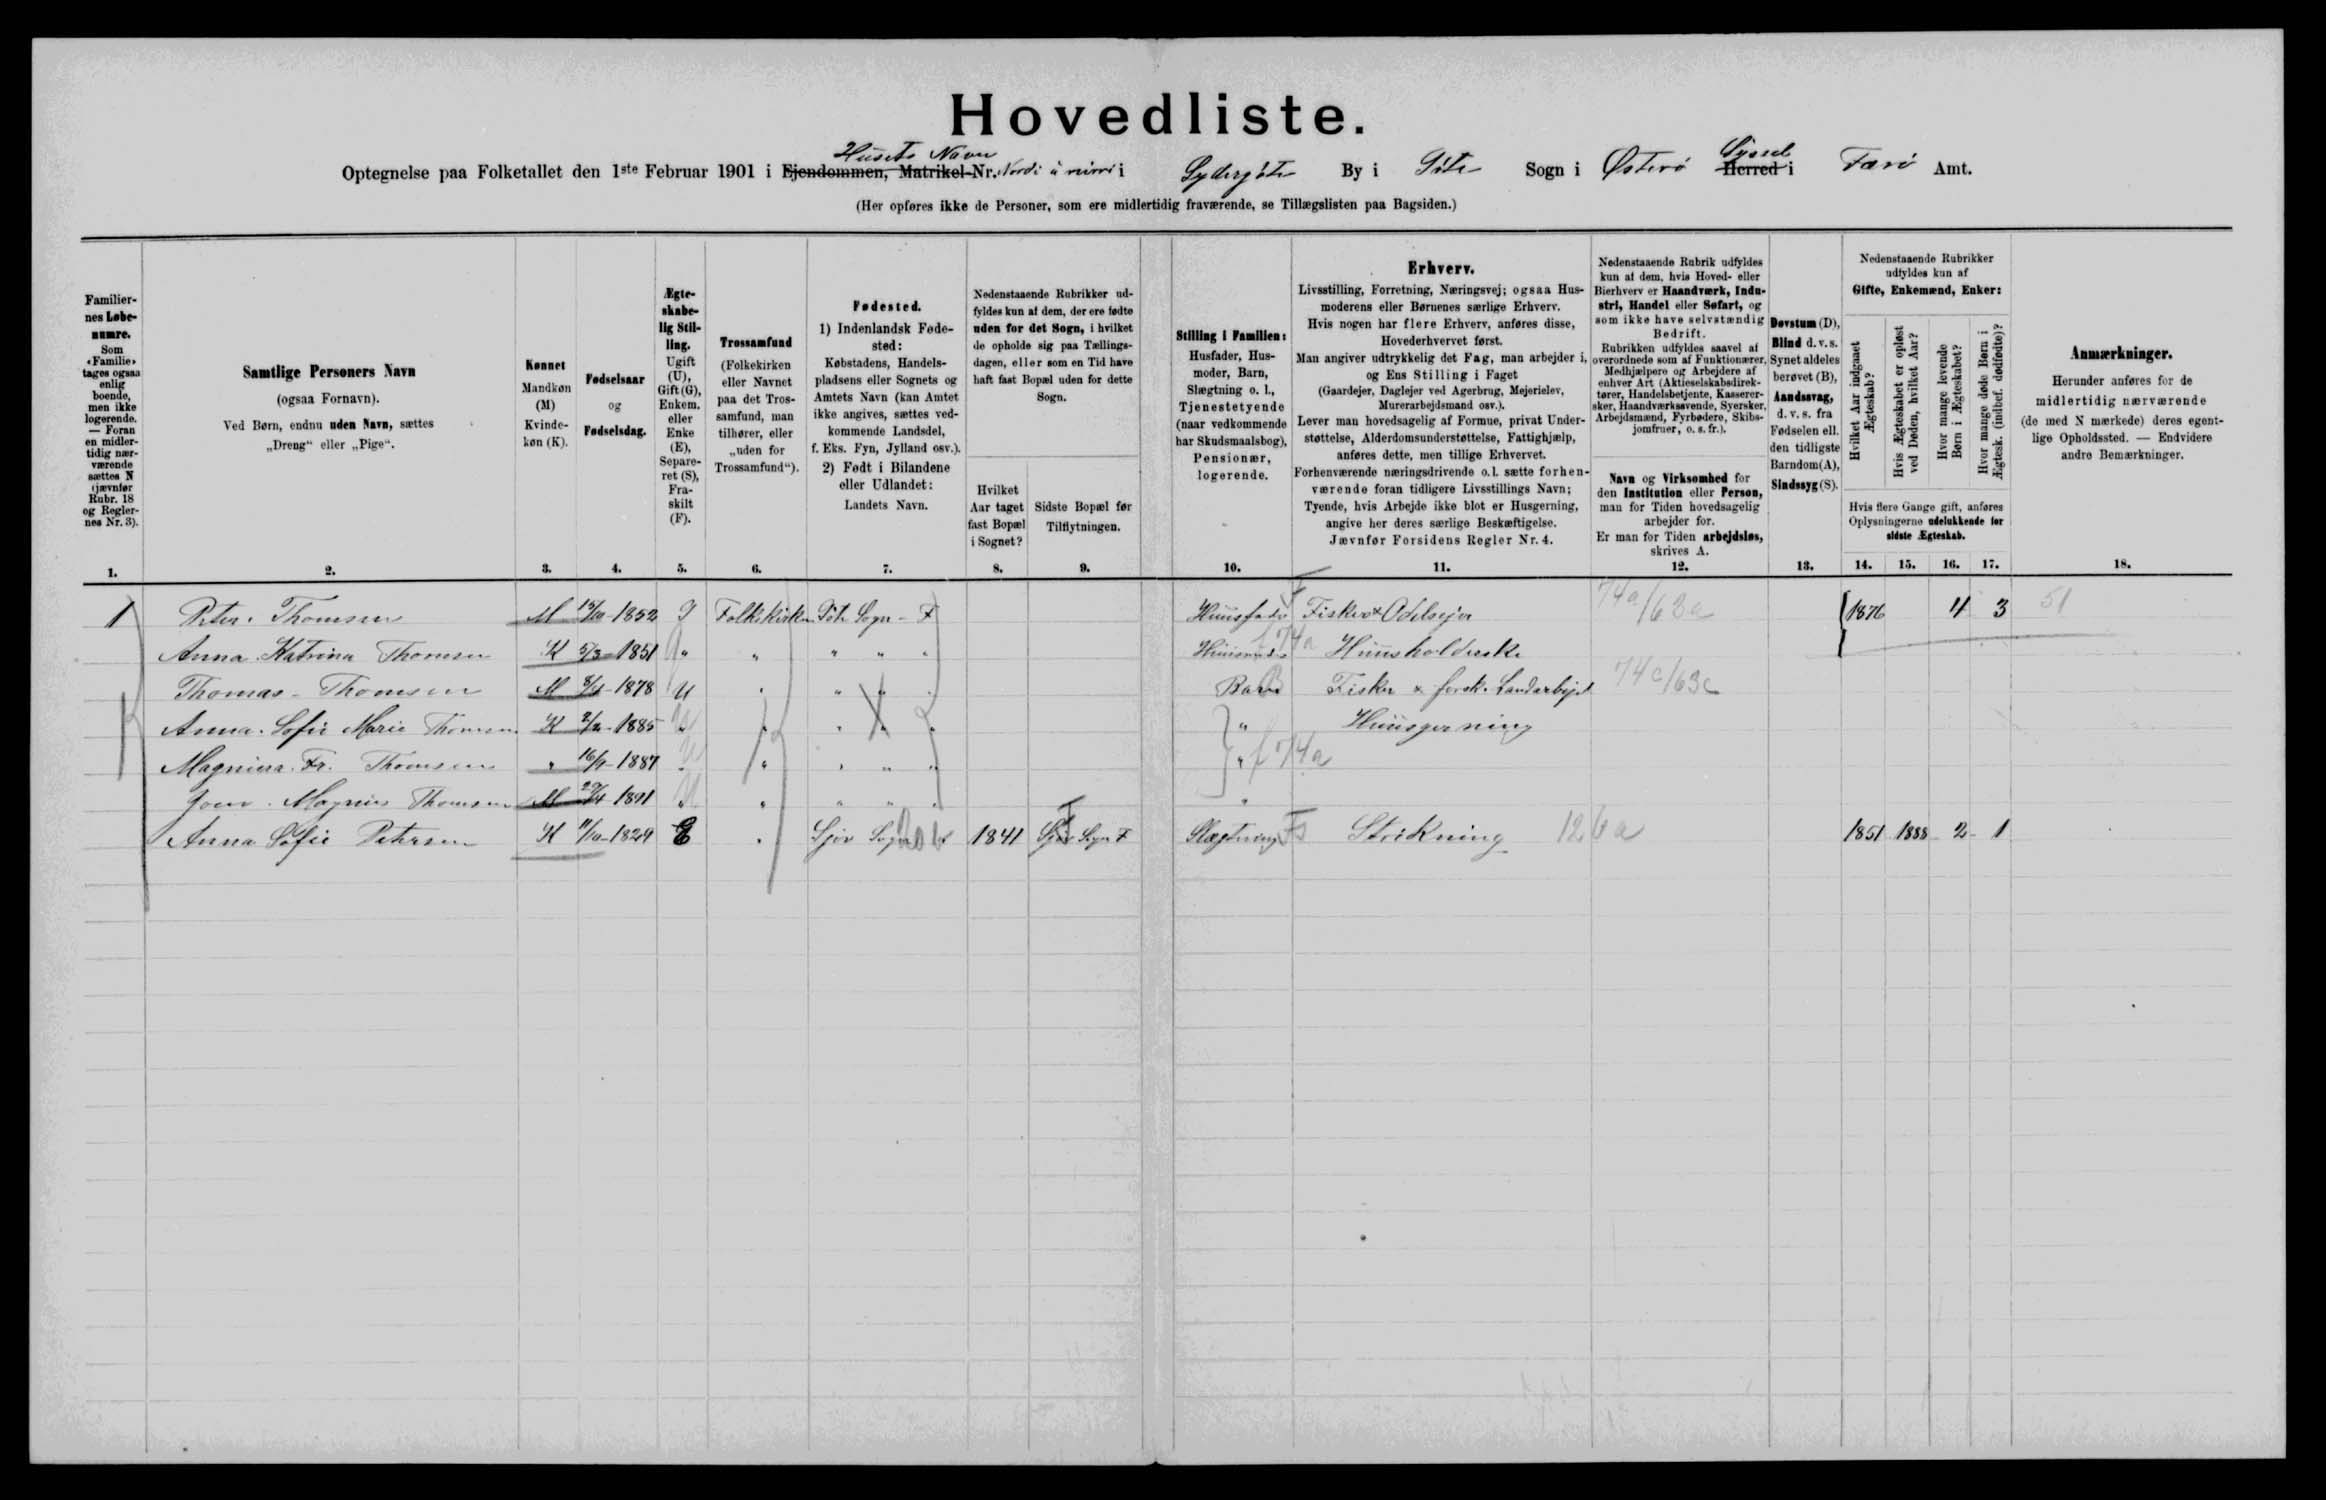 Hovedliste.
Husets Navn Syssel
Optegnelse paa Folketallet den 1ste Februar 1901 i Ejendommen, Matrikel-Nr. Nordi i Sydergöte By i Göte Sogn i Østerö Herred i Færö Amt.
(Her opføres ikke de Personer, som ere midlertidig fraværende, se Tillægslisten paa Bagsiden.)
Familiernes Løbenumre.
Som «Familie» tages ogsaa enlig boende, men ikke logerende. — Foran en midlertidig nærværende sættes N (jævnfør Rubr. 18 og Reglernes Nr. 3).
1.
Samtlige Personers Navn
(ogsaa Fornavn).
Ved Børn, endnu uden Navn, sættes
„Dreng“ eller „Pige“.
2.
Kønnet
Mandkøn (M)
Kvindekøn (K).
3.
Fødselsaar
og
Fødselsdag.
4.
Ægteskabelig Stilling.
Ugift (U), Gift (G), Enkem. eller Enke (E), Separeret (S), Fraskilt (F).
5.
Trossamfund
(Folkekirken eller Navnet paa det Trossamfund, man tilhører, eller „uden for Trossamfund“).
6.
Fødested.
1) Indenlandsk Fødested:
Købstadens, Handelspladsens eller Sognets og Amtets Navn (kan Amtet ikke angives, sættes vedkommende Landsdel, f. Eks. Fyn, Jylland osv.).
2) Født i Bilandene eller Udlandet:
Landets Navn.
7.
Nedenstaaende Rubrikker udfyldes kun af dem, der ere fødte uden for det Sogn, i hvilket de opholde sig paa Tællingsdagen, eller som en Tid have haft fast Bopæl uden for dette Sogn.
Hvilket Aar taget fast Bopæl i Sognet?
8.
Sidste Bopæl før Tilflytningen.
9.
Stilling i Familien:
Husfader, Husmoder, Barn, Slægtning o. l., Tjenestetyende (naar vedkommende har Skudsmaalsbog), Pensionær, logerende.
10.
Erhverv.
Livsstilling, Forretning, Næringsvej; ogsaa Husmoderens eller Børnenes særlige Erhverv.
Hvis nogen har flere Erhverv, anføres disse, Hovederhvervet først.
Man angiver udtrykkelig det Fag, man arbejder i, og Ens Stilling i Faget
(Gaardejer, Daglejer ved Agerbrug, Mejerielev, Murerarbejdsmand osv.).
Lever man hovedsagelig af Formue, privat Understøttelse, Alderdomsunderstøttelse, Fattighjælp, anføres dette, men tillige Erhvervet.
Forhenværende næringsdrivende o.l. sætte forhenværende foran tidligere Livsstillings Navn;
Tyende, hvis Arbejde ikke blot er Husgerning, angive her deres særlige Beskæftigelse.
Jævnfør Forsidens Regler Nr. 4.
11.
Nedenstaaende Rubrik udfyldes kun af dem, hvis Hoved- eller Bierhverv er Haandværk, Industri, Handel eller Søfart, og som ikke have selvstændig Bedrift.
Rubrikken udfyldes saavel af overordnede som af Funktionærer, Medhjælpere og Arbejdere af enhver Art (Aktieselskabsdirektører, Handelsbetjente, Kasserersker, Haandværkssvende, Syersker, Arbejdsmænd, Fyrbødere, Skibsjomfruer, o. s. fr.).
Navn og Virksomhed for den Institution eller Person, man for Tiden hovedsagelig arbejder for.
Er man for Tiden arbejdsløs, skrives A.
12.
Døvstum (D), Blind d. v. s. Synet aldeles berøvet (B), Aandssvag, d. v. s. fra Fødselen ell. den tidligste Barndom (A), Sindssyg (S).
13.
Nedenstaaende Rubrikker udfyldes kun af
Gifte, Enkemænd, Enker:
Hvilket Aar indgaaet Ægteskab?
Hvis Ægteskabet er opløst ved Døden, hvilket Aar?
Hvor mange levende Børn i Ægteskabet?
Hvor mange døde Børn i Ægtesk. (indbef. dødfødte)?
Hvis flere Gange gift, anføres Oplysningerne udelukkende for sidste Ægteskab.
14. 15. 16. 17.
Anmærkninger.
Herunder anføres for de midlertidig nærværende (de med N mærkede) deres egentlige Opholdssted. — Endvidere andre Bemærkninger.
18.
1 Peter. Thomsen M 15/10-1852 G Folkekirken Göte Sogn - F Huusfader Fisker & Odelsejer 74a/63a 1876 4 3 51
Anna Katrina Thomsen K 5/3-1851 " " " " " Huusmoder f 74a Huusholderske
Thomas - Thomsen M 8/4-1878 U " " " " Barn Fisker & 74c/63c
Anna. Sofie Marie Thomsen K 1885 " " " " " " Huusgerning
Magnina. Fr. Thomsen " 16/9-1887 " " " " " " f 74a
Magnus Thomsen M 1891 " " " " " "
Anna Sofie Petersen K 11/10-1829 E " Sjov Sogn 1841 Sjov Sogn F Slægtning Fs Strikning 126a 1851 1888 2 1